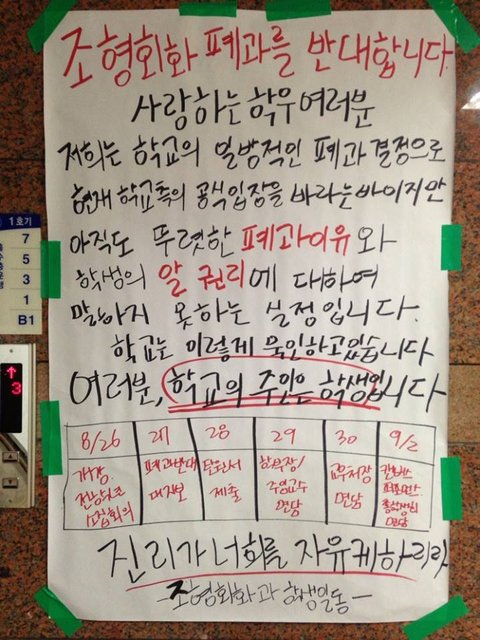 조형회화 폐과를 반대합니다
사랑하는 학우여러분
저희는 학교의 일방적인 폐과결정으로
현재 학교측의 공식입장을 바라는바이지만
아직도 뚜렷한 폐과이유와
학생의 알 권리에 대하여
말하지 못하는 실정입니다.
학교는 이렇게 묵인하고있습니다
여러분, 학교의 주인은 학생입니다
8/26 27 28 29 30 9/2
개강 폐과반대 대자보 제출 학부장/ 주임교수 면담 교무처장 면담 총학생회 면담
소집회의
진리가 너희를 자유케하리라
-조형회화과 학생일동-
1호기
7
5
3
1
B1
3